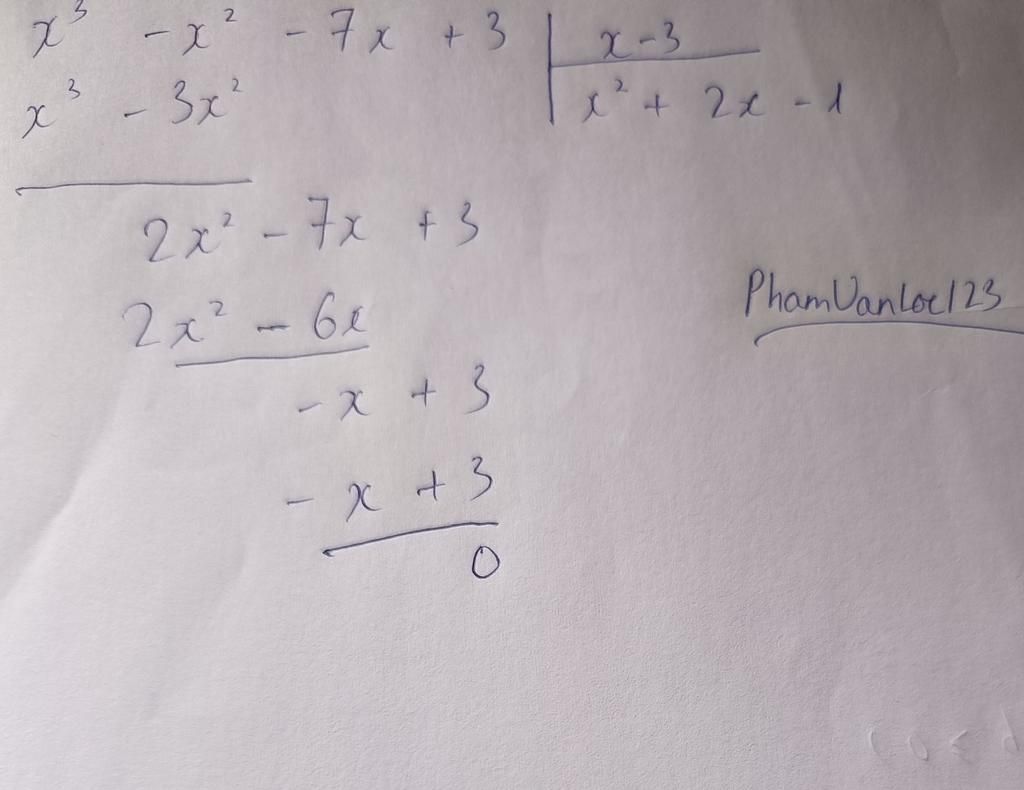 x³ - x² - 7x + 3 | x - 3
x³ - 3x² | x² + 2x - 1
2x² - 7x + 3
2x² - 6x
PhamVanLoc123
- x + 3
- x + 3
0